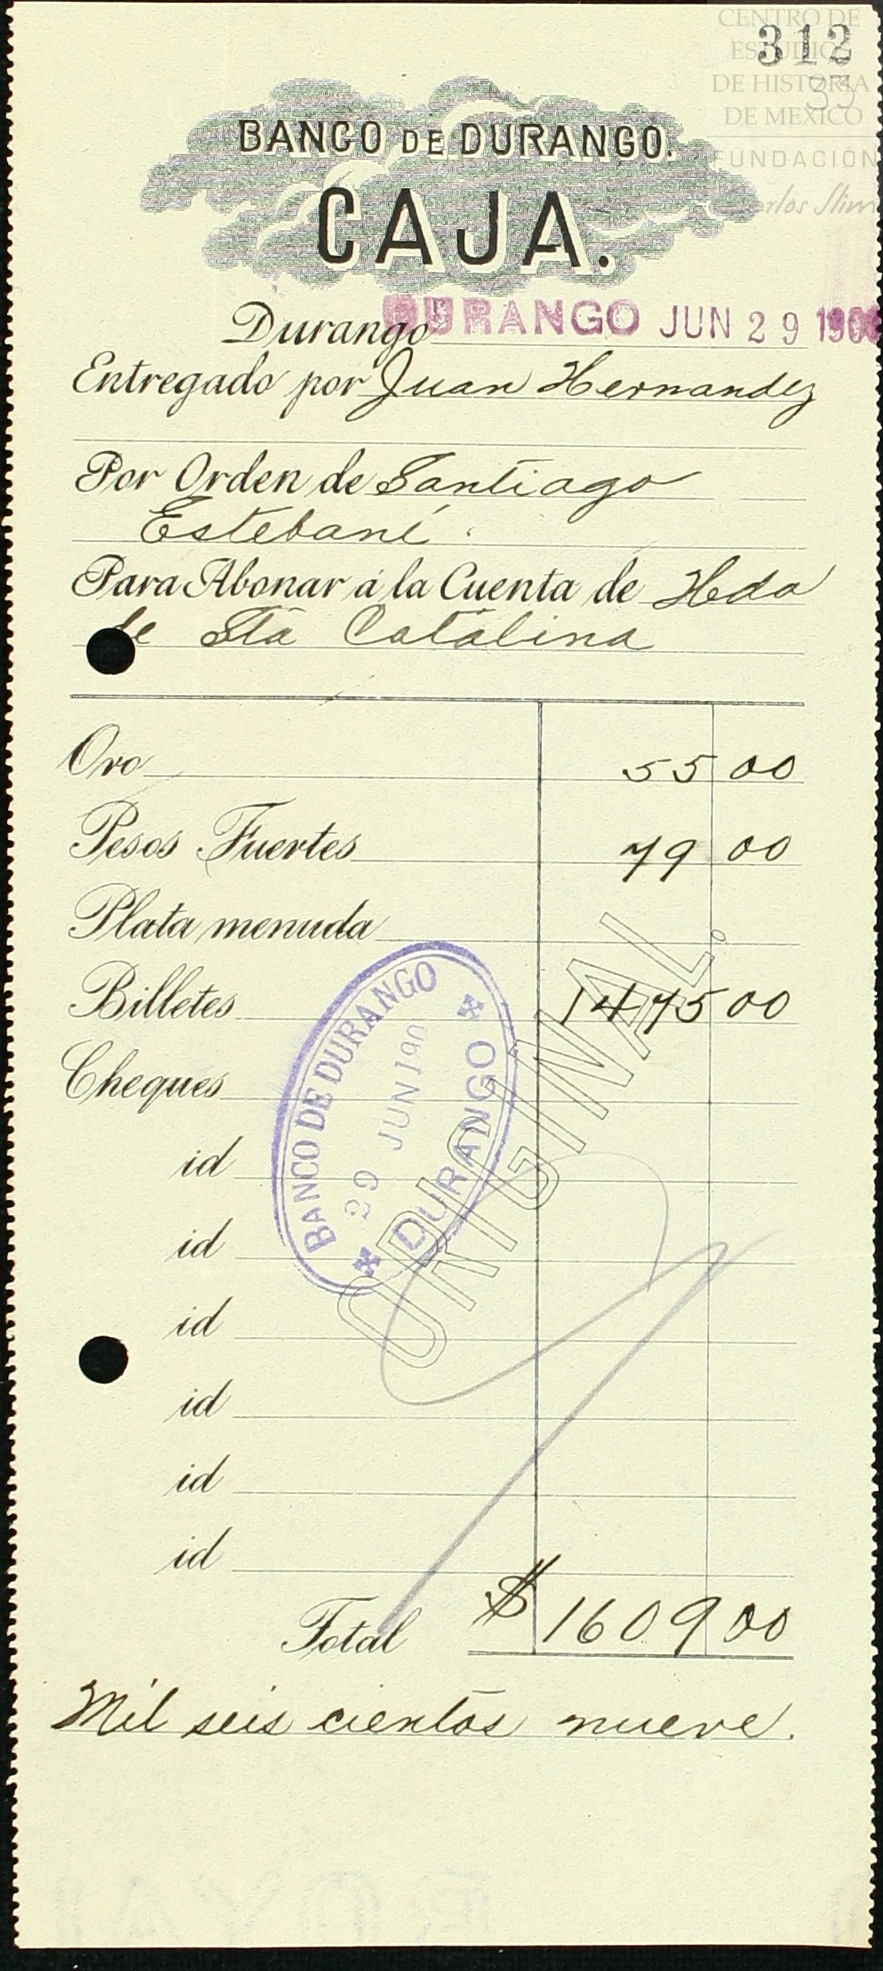 CENTRO DE
ESTUDIOS
DE HISTORIA
DE MEXICO
FUNDACIÓN
Carlos Slim
312
33
BANCO DE DURANGO.
CAJA.
Durango DURANGO JUN 29 190
Entregado por Juan Hernandez
Por Orden de Santiago
Estebané.
Para Abonar á la Cuenta de Hda
de Sta Catalina
Oro 55 00
Pesos Fuertes 79 00
Plata menuda
Billetes 1475 00
Cheques
id
id
id
id
id
id
Total $ 1609 00
Mil seis cientos nueve.
BANCO DE DURANGO
29 JUN 190
DURANGO
ORIGINAL.